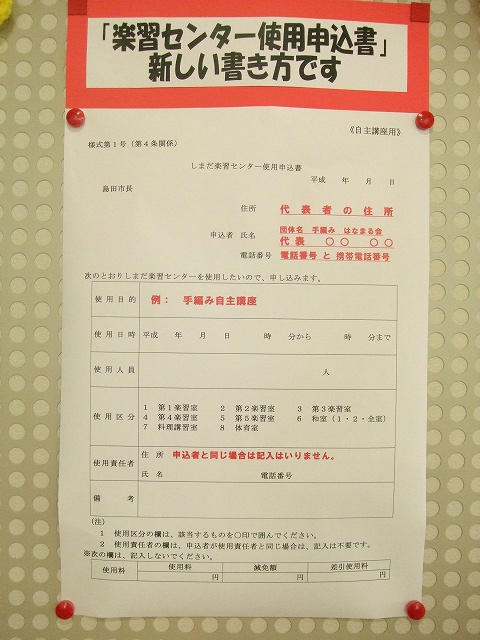 「楽習センター使用申込書」
新しい書き方です
《自主講座用》
様式第1号（第4条関係）
しまだ楽習センター使用申込書
平成　年　月　日
島田市長
住所　代表者の住所
団体名　手編み　はなまる会
申込者　氏名　代表　〇〇　〇〇
電話番号　電話番号 と 携帯電話番号
次のとおりしまだ楽習センターを使用したいので、申し込みます。
使用目的　例：　手編み自主講座
使用日時　平成　年　月　日　時　分から　時　分まで
使用人員　人
1　第1楽習室　2　第2楽習室　3　第3楽習室
使用区分　4　第4楽習室　5　第5楽習室　6　和室（1・2・全室）
7　料理講習室　8　体育室
住所　申込者と同じ場合は記入はいりません。
使用責任者
氏名　電話番号
備考
（注）
1　使用区分の欄は、該当するものを〇印で囲んでください。
2　使用責任者の欄は、申込者が使用責任者と同じ場合は、記入は不要です。
※次の欄は、記入しないでください。
使用料　使用料　減免額　差引使用料
円　円　円